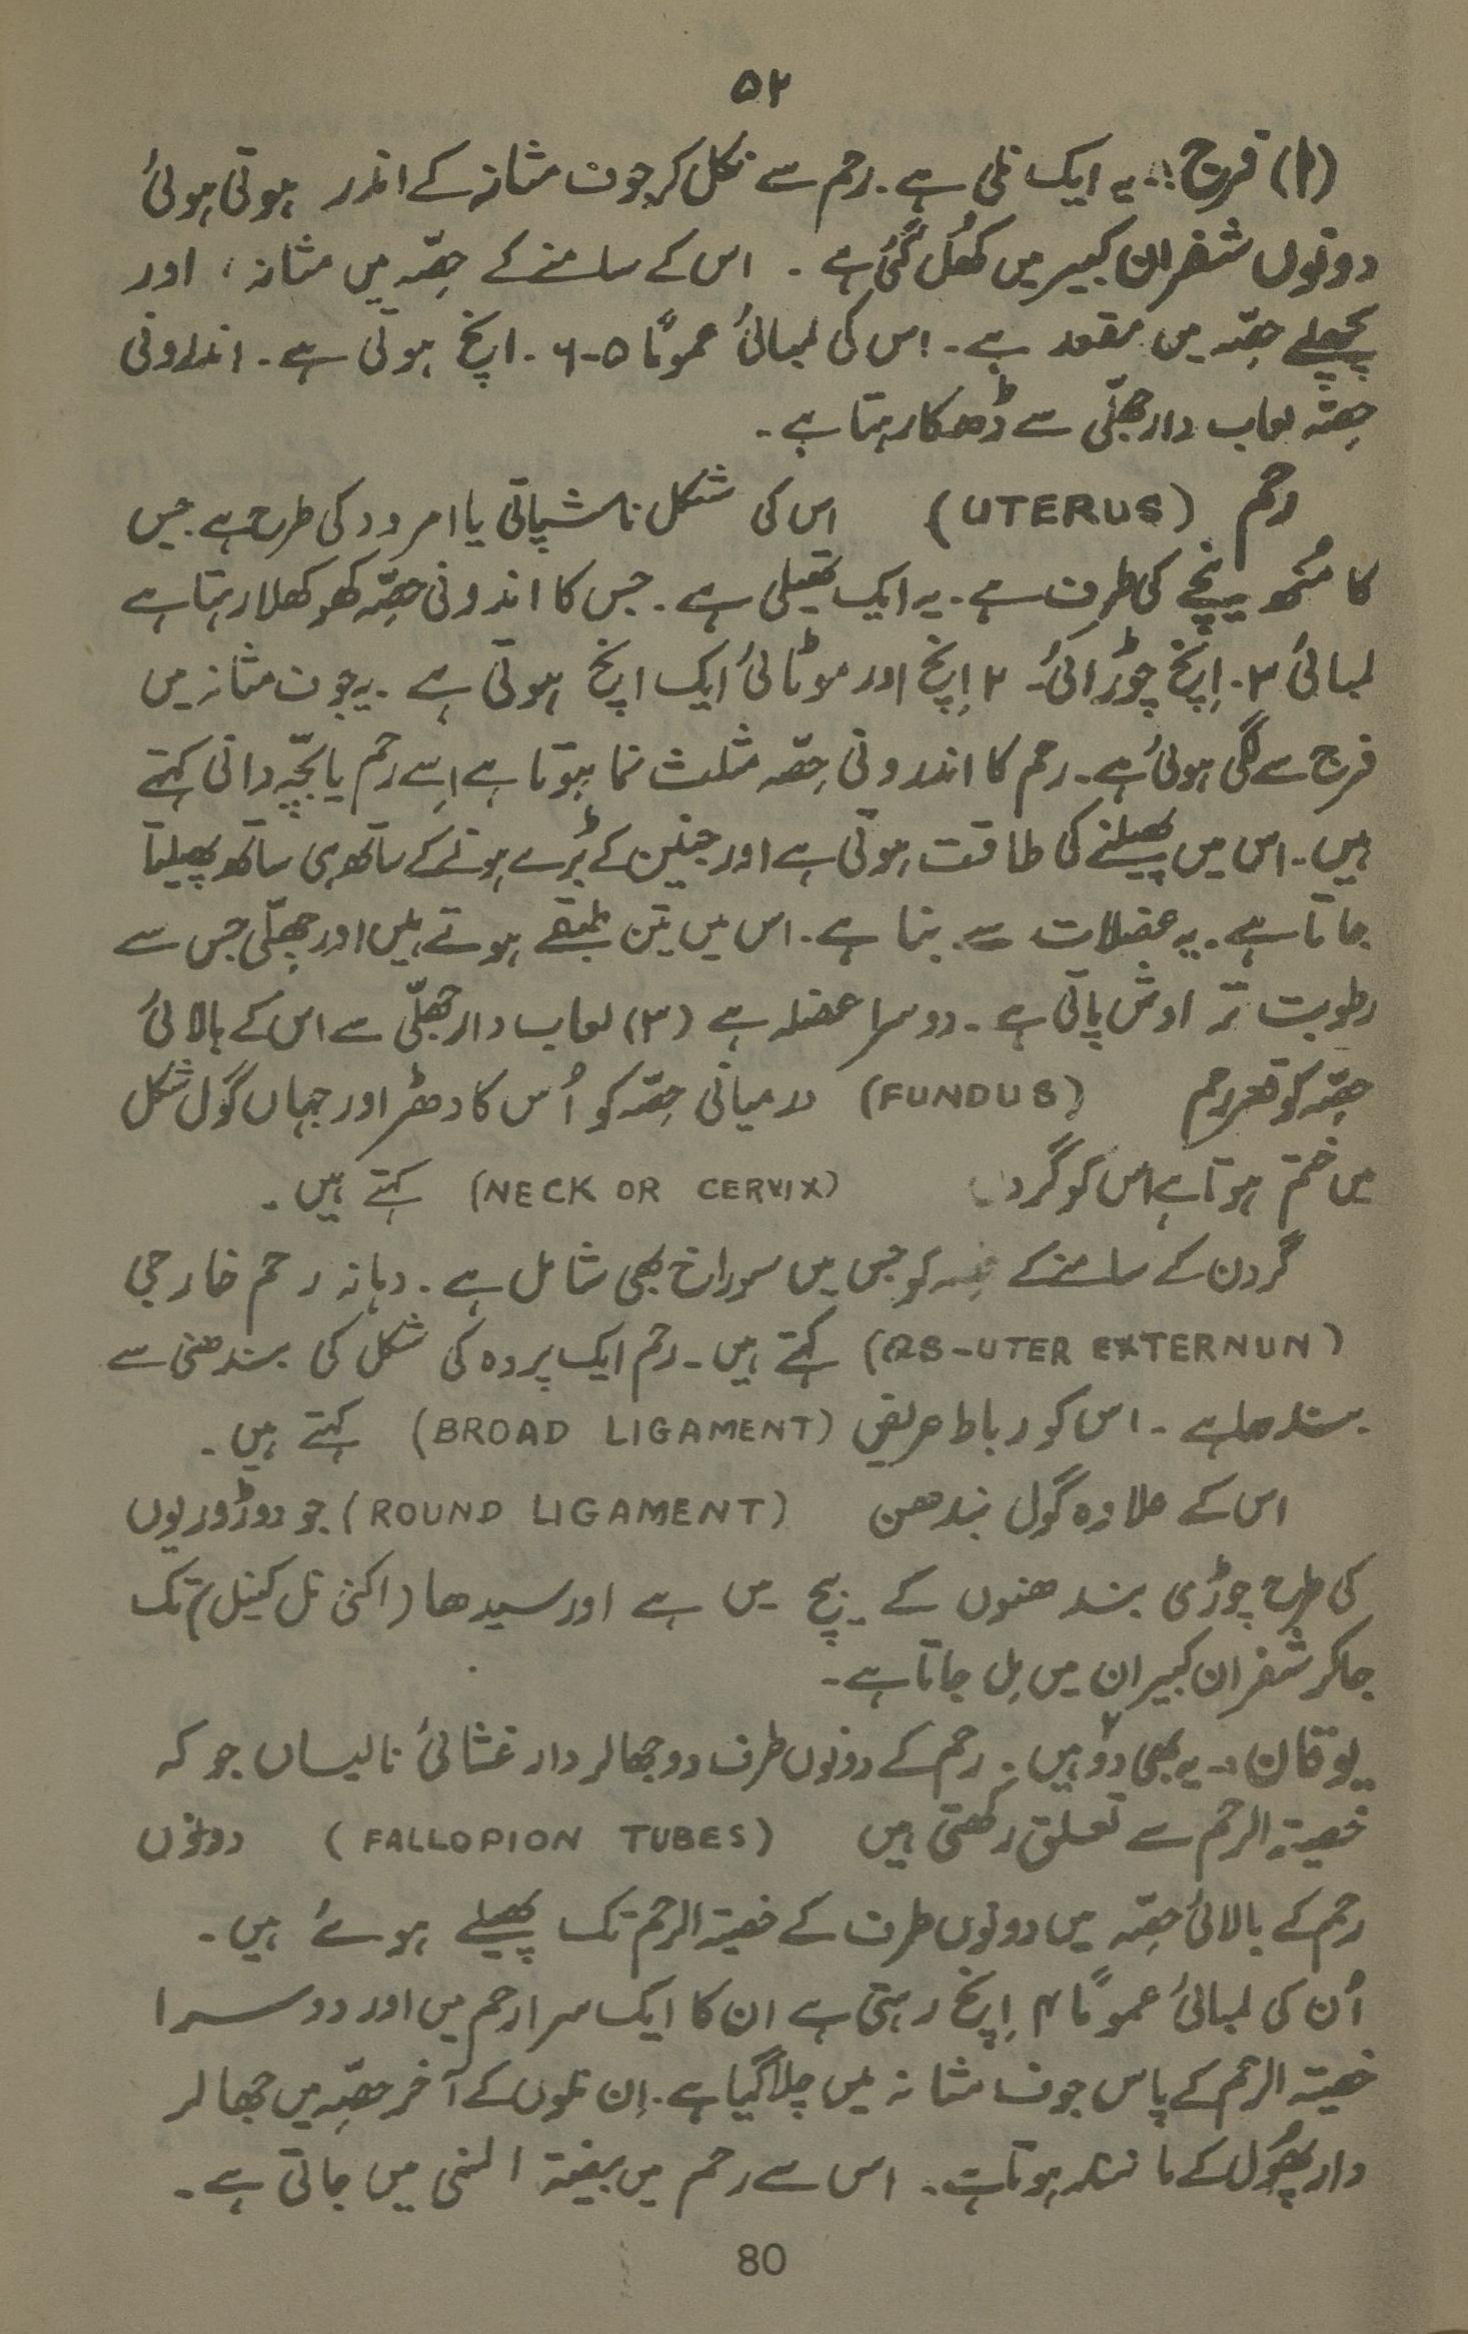 ۵۲
(۱) فرج :. یہ ایک نلی ہے۔ رحم سے نکل کر جوف مثانہ کے اندر ہوتی ہوئی
دونوں شفران کبیر میں کھُل گئی ہے ۔ اس کے سامنے کے حِصّہ میں مثانہ، اور
پچھلے حِصّہ میں مقعد ہے۔ اس کی لمبائی عموماً ۵-۶ ۔ اِنچ ہوتی ہے۔ اندرونی
حِصّہ لعاب دار جھلّی سے ڈھکا رہتا ہے۔
رحم (UTERUS) اس کی شکل ناشپاتی یا امرود کی طرح ہے جس
کا مُنھ نیچے کی طرف ہے۔ یہ ایک تھیلی ہے۔ جس کا اندرونی حِصّہ کھوکھلا رہتا ہے
لمبائی ۳۔ اِنچ چوڑائی۔ ۲ اِنچ اور موٹائی ایک اِنچ ہوتی ہے ۔ یہ جوف مثانہ میں
فرج سے لگی ہوئی ہے۔ رحم کا اندرونی حِصّہ مثلث نما ہوتا ہے اِسے رحم یا بچّہ دانی کہتے
ہیں۔ اس میں پھیلنے کی طاقت ہوتی ہے اور جنین کے بڑے ہونے کے ساتھ ہی ساتھ پھیلتا
جاتا ہے۔ یہ عضلات سے بنا ہے۔ اس میں تین طبقے ہوتے ہیں اور جھلّی جس سے
رطوبت تراوش پاتی ہے۔ دوسرا عضلہ ہے (۳) لعاب دار جھلّی سے اس کے بالائی
حِصّہ کو قعر رحم (FUNDUS) درمیانی حِصّہ کو اُس کا دھڑ اور جہاں گول شکل
میں ختم ہوتا ہے اس کو گردن (NECK OR CERVIX) کہتے ہیں ۔
گردن کے سامنے کے حِصہ کو جس میں سوراخ بھی شامل ہے ۔ دہانہ رحم خارجی
(OS-UTER EXTERNUN) کہتے ہیں۔ رحم ایک پردہ کی شکل کی بندھنی سے
بندھا ہے ۔ اس کو رباط عریض (BROAD LIGAMENT) کہتے ہیں ۔
اس کے علاوہ گول بندھن (ROUND LIGAMENT) جو دو ڈوریوں
کی طرح چوڑی بندھنوں کے بیچ میں ہے اور سیدھا (اکنی نل کینل) تک
جا کر شفران کبیران میں مِل جاتا ہے۔
یوقان :۔ یہ بھی دو ہیں ۔ رحم کے دونوں طرف دو جھالر دار غشائی نالیاں جو کہ
خصیتہ الرحم سے تعلق رکھتی ہیں (FALLOPION TUBES) دونوں
رحم کے بالائی حِصّہ میں دونوں طرف کے خصیتہ الرحم تک پھیلے ہوئے ہیں ۔
اُن کی لمبائی عموماً ۴ اِنچ رہتی ہے ان کا ایک سرا رحم میں اور دوسرا
خصیتہ الرحم کے پاس جوف مثانہ میں چلا گیا ہے۔ اِن نلوں کے آخر حصّہ میں جھالر
دار پھُول کے مانند ہوتا ہے۔ اس سے رحم میں بیضۃ النثی میں جاتی ہے ۔
80